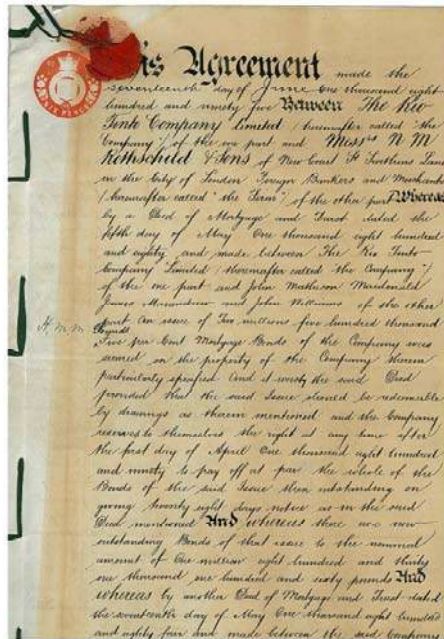 This Agreement made the
seventeenth day of June One thousand eight
hundred and ninety five Between The Rio
Tinto Company Limited (hereinafter called the
Company) of the one part and Messrs N M
Rothschild & Sons of New Court St Swithins Lane
in the City of London Foreign Bankers and Merchants
(hereinafter called "the Firm") of the other part Whereas
by a Deed of Mortgage and Trust dated the
fifth day of May One thousand eight hundred
and eighty and made between The Rio Tinto
Company Limited (thereinafter called the Company)
of the one part and John Matheson Macdonald
James and John Williams of the other
part An issue of Two millions five hundred thousand
Pounds
Five per Cent Mortgage Bonds of the Company were
secured on the property of the Company therein
particularly specified And it was by the said Deed
provided that the said Issue should be redeemable
by drawings as therein mentioned and the Company
reserved to themselves the right at any time after
the first day of April One thousand eight hundred
and ninety to pay off at par the whole of the
Bonds of the said Issue then outstanding on
giving twenty eight days notice as in the said
Deed mentioned And whereas there are now
outstanding Bonds of that issue to the nominal
amount of One million eight hundred and thirty
one thousand one hundred and sixty pounds And
whereas by another Deed of Mortgage and Trust dated
the seventeenth day of May One thousand eight hundred
and eighty four and made between the said Company